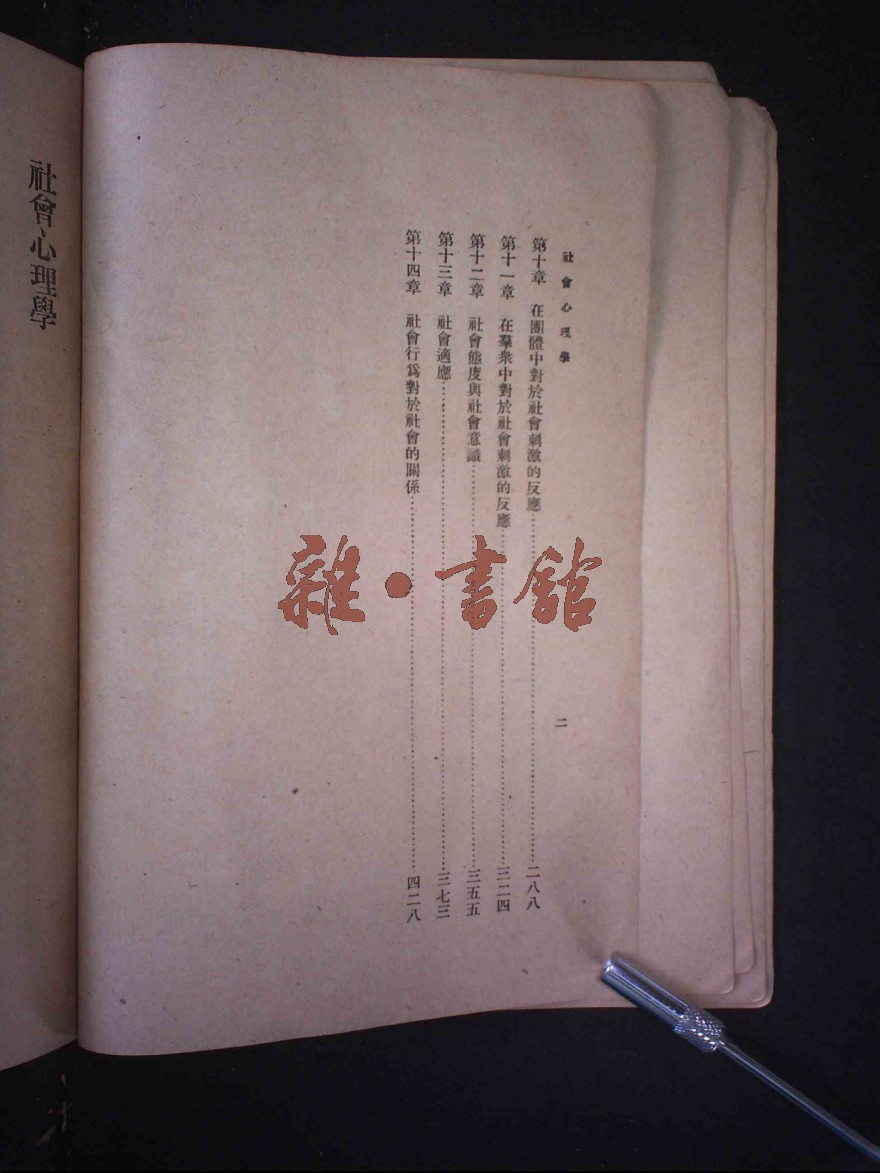 社會心理學
二
第十章　在團體中對於社會刺激的反應……二八八
第十一章　在羣衆中對於社會刺激的反應……三二四
第十二章　社會態度與社會意識……三五五
第十三章　社會適應……三七三
第十四章　社會行爲對於社會的關係……四二八
社會心理學
雜・書館